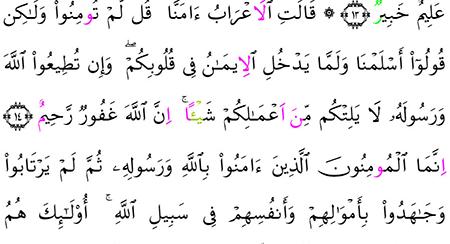 عَلِيمٌ خَبِيرٌ ﴿١٣﴾ ۞ قَالَتِ اَلَاعْرَابُ ءَامَنَّا ۖ قُل لَّمْ تُومِنُوا۟ وَلَٰكِن
قُولُوٓا۟ أَسْلَمْنَا وَلَمَّا يَدْخُلِ اِلِايمَٰنُ فِى قُلُوبِكُمْ ۖ وَإِن تُطِيعُوا۟ اللَّهَ
وَرَسُولَهُۥ لَا يَلِتْكُم مِّنَ اَعْمَٰلِكُمْ شَيْـًٔا ۚ اِنَّ اللَّهَ غَفُورٌ رَّحِيمٌ ﴿١٤﴾
اِنَّمَا الْمُومِنُونَ الَّذِينَ ءَامَنُوا۟ بِاللَّهِ وَرَسُولِهِۦ ثُمَّ لَمْ يَرْتَابُوا۟
وَجَٰهَدُوا۟ بِأَمْوَٰلِهِمْ وَأَنفُسِهِمْ فِى سَبِيلِ اللَّهِ ۚ أُو۟لَٰٓئِكَ هُمُ